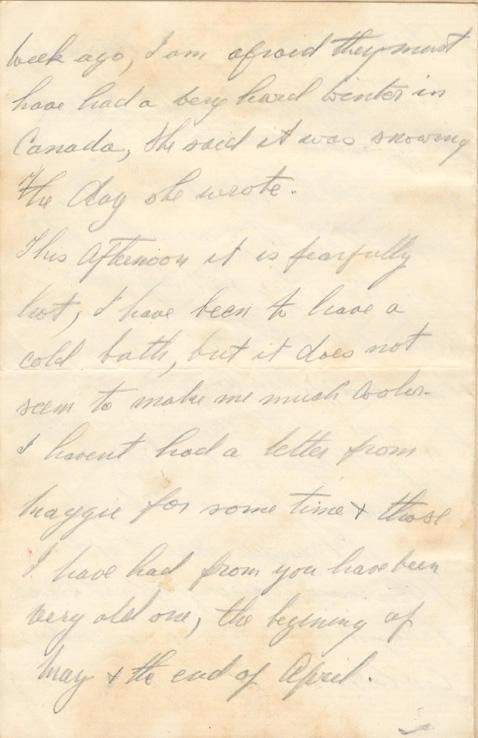 week ago, I am afraid they must
have had a very hard winter in
Canada, She said it was snowing
the day she wrote.
This afternoon it is fearfully
hot, I have been to have a
cold bath, but it does not
seem to make me much cooler.
I havent had a letter from
Maggie for some time & those
I have had from you have been
very old one, the begining of
May & the end of April.